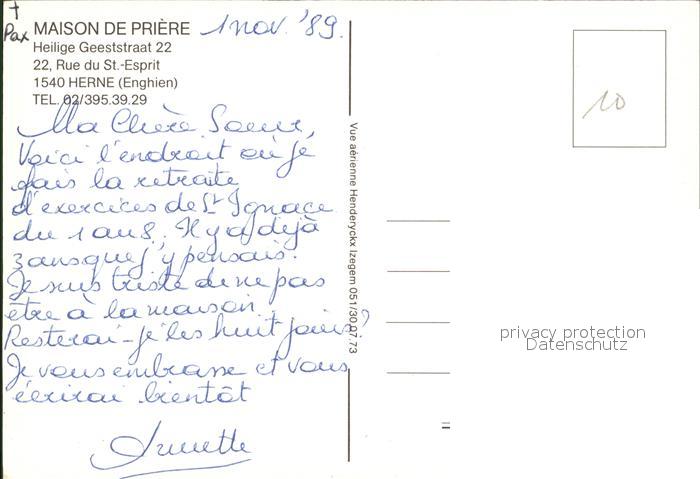 †
Pax
MAISON DE PRIÈRE 1 nov. '89.
Heilige Geeststraat 22
22, Rue du St.-Esprit
1540 HERNE (Enghien)
TEL. 02/395.39.29
Ma Chère Soeur,
Voici l'endroit où je
fais la retraite
d'exercices de St Ignace
du 1 au 8. Il y a déjà
3 ans que j'y pensais.
Je suis triste de ne pas
être à la maison.
Resterai-je les huit jours?
Je vous embrasse et vous
écrirai bientôt
Vue aérienne Henderyckx Izegem 051/30.07.73
10
privacy protection
Datenschutz